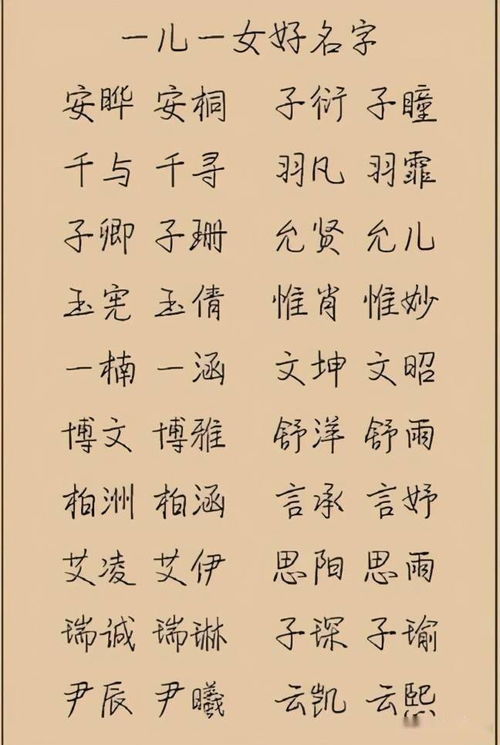 一儿一女好名字
安晔 安桐 子衍 子瞳
千与 千寻 羽凡 羽霏
子卿 子珊 允贤 允儿
玉宪 玉倩 惟肖 惟妙
一楠 一涵 文坤 文昭
博文 博雅 舒洋 舒雨
柏洲 柏涵 言承 言妤
艾凌 艾伊 思阳 思雨
瑞诚 瑞琳 子琛 子瑜
尹辰 尹曦 云凯 云熙